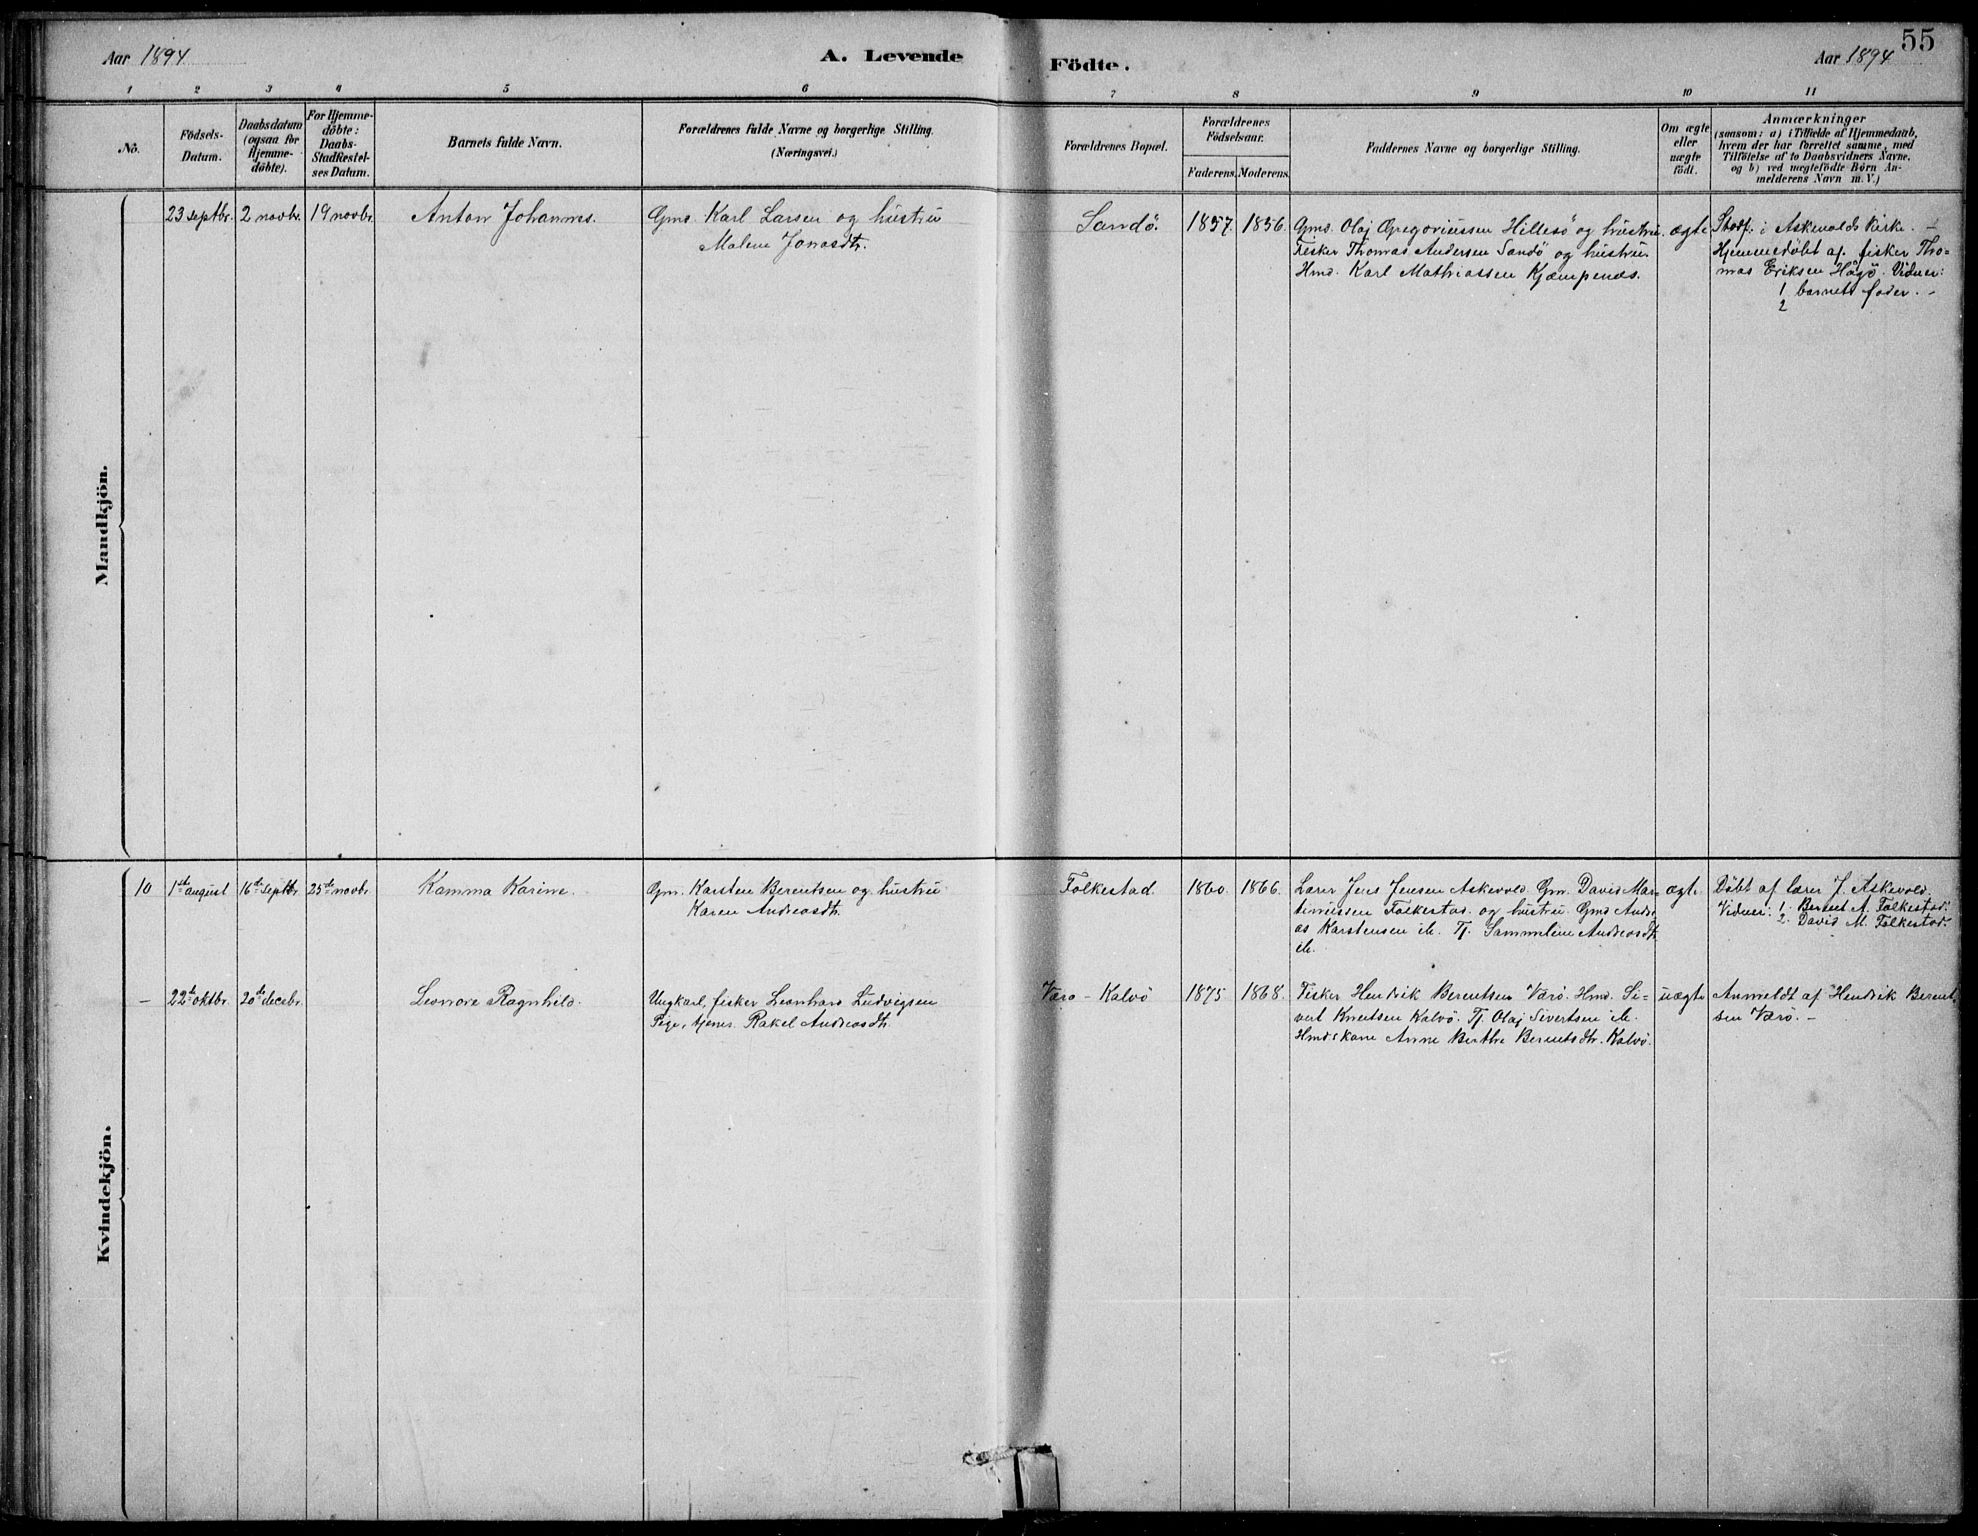 55
Aar 1894 A. Levende Födte. Aar 1894
1 2 3 4 5 6 7 8 9 10 11
No.
Födsels-
Datum.
Daabsdatum
(ogsaa for
Hjemme-
döbte).
For Hjemme-
döbte:
Daabs-
Stadfæstel-
ses Datum.
Barnets fulde Navn.
Forældrenes fulde Navne og borgerlige Stilling.
(Næringsvei.)
Forældrenes Bopæl.
Forældrenes
Födselsaar.
Faderens. Moderens.
Faddernes Navne og borgerlige Stilling.
Om ægte
eller
uægte
født.
Anmærkninger
(saasom: a) i Tilfælde af Hjemmedaab,
hvem der har forrettet samme, med
Tilföielse af to Daabsvidners Navne,
og b) ved uægtefödte Börn An-
melderens Navn m. V.)
Mandkjön.
23 septbr. 2 novbr. 19 novbr.
Anton Johannes.
Gms. Karl Larsen og hustru
Malene Jonasdtr.
Sandö.
1857. 1856.
Gms. Olaf Gregoriussen Hillesö og hustru.
Fisker Thomas Andersen Sandö og hustru.
Hmd. Karl Mathiassen Kjæmpenæs.
ægte
Stadf. i Askevolds Kirke. –
Hjemmedöbt af fisker Tho-
mas Eriksen Hågö. Vidner:
1 barnets fader. –
2
Kvindekjön.
10 1ste august 16de septbr. 25de novbr.
Kamma Karine.
Gm. Karsten Berentsen og hustru
Karen Andreasdtr.
Folkestad
1860. 1866.
Lærer Jens Jensen Askevold. Gm. David Mar-
tinussen Folkestad og hustru. Gms Andre-
as Karstensen ib. Tj. Sammeline Andreasdtr.
ib.
ægte
Döbt af lærer J. Askevold.
Vidner: 1. Berent A. Folkestad.
2. David M. Folkestad.
– 22de oktbr. 20de decbr.
Leonore Ragnhild.
Ungkarl, fisker Leonhard Ludvigsen
Pige, tjener Rakel Andreasdtr.
Værö – Kalvö
1875 1868.
Fisker Hendrik Berentsen Værö. Hmd. Si-
vert Knutsen Kalvö. Tj. Olaf Sivertsen ib.
Hmdskone Anne Berthe Berentsdtr. Kalvö.
uægte
Anmeldt af Hendrik Berent-
sen Værö. –